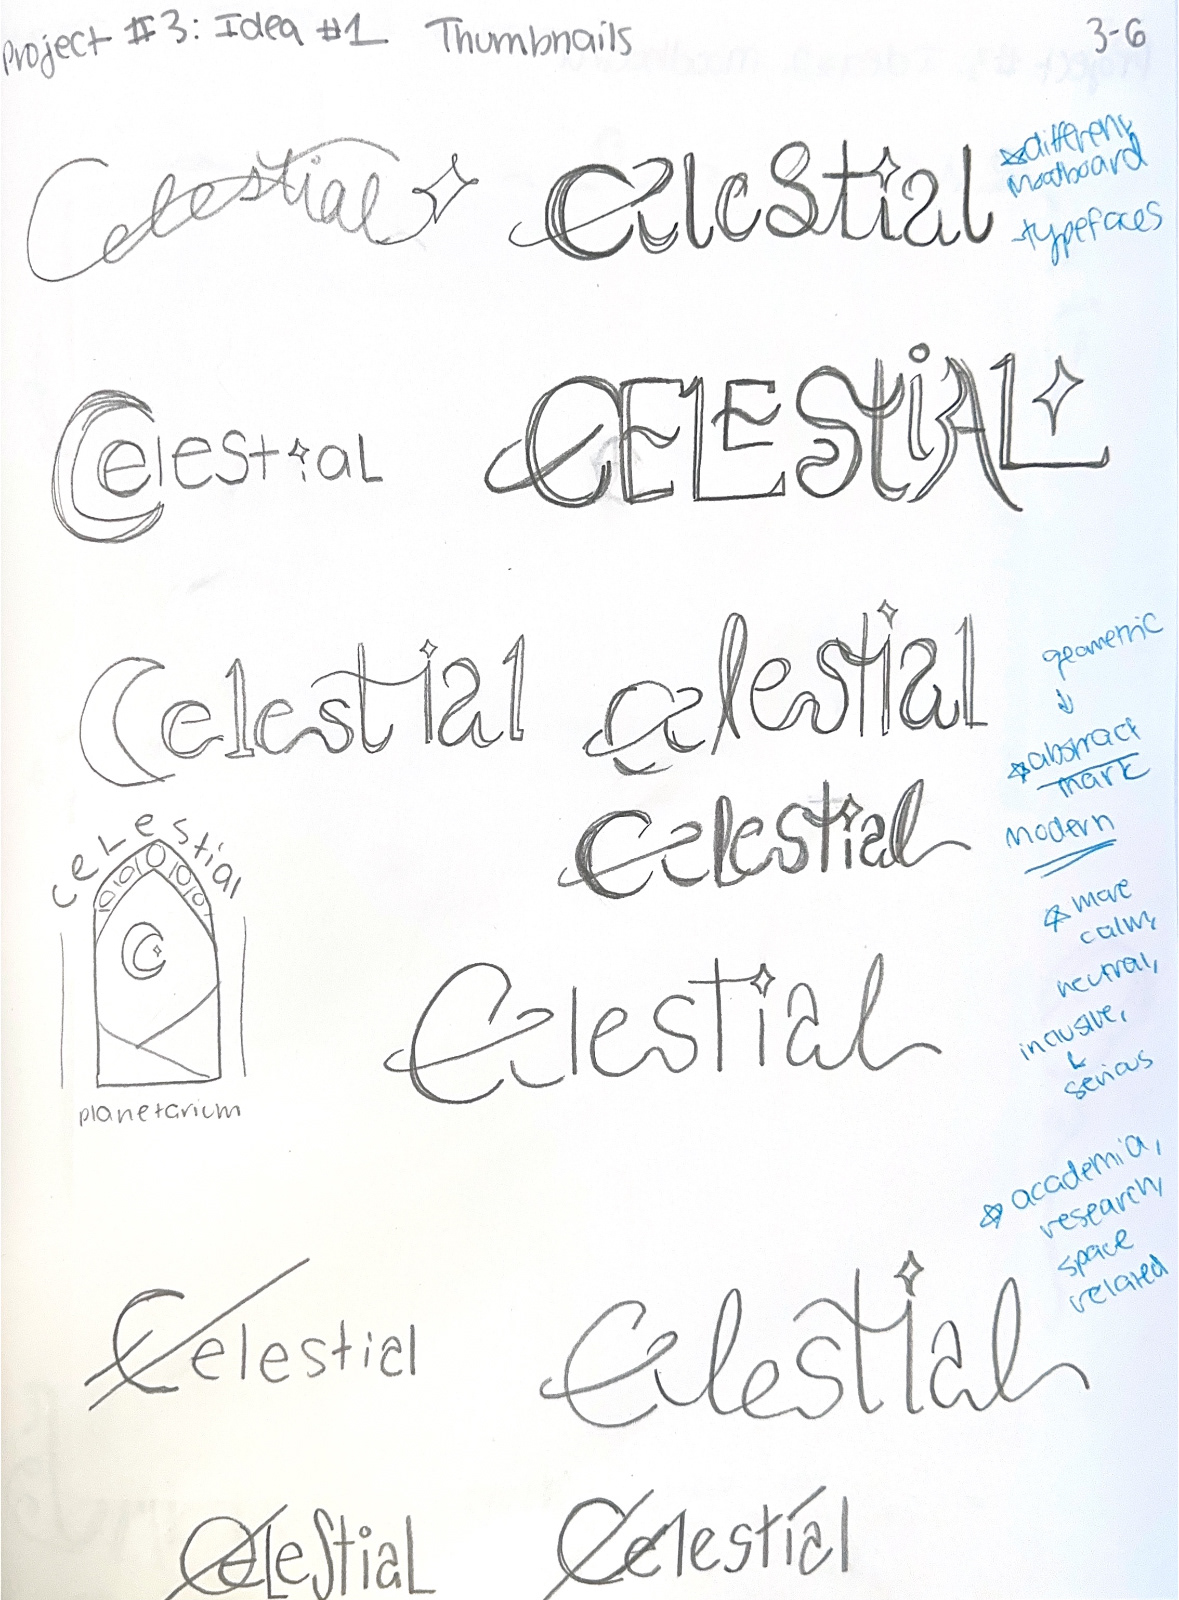 Project #3: Idea #1 Thumbnails 3-6
Celestial
Celestial
☆different
moodboard
-typefaces
Celestial
CELESTiAL
Celestial
Celestial
geometric
↓
☆abstract
mark
modern
Celestial
Celestial
planetarium
☆ more
calm,
neutral,
inclusive,
serious
Celestial
☆ academia,
research,
space
related
Celestial
Celestial
CeleStiaL
Celestial